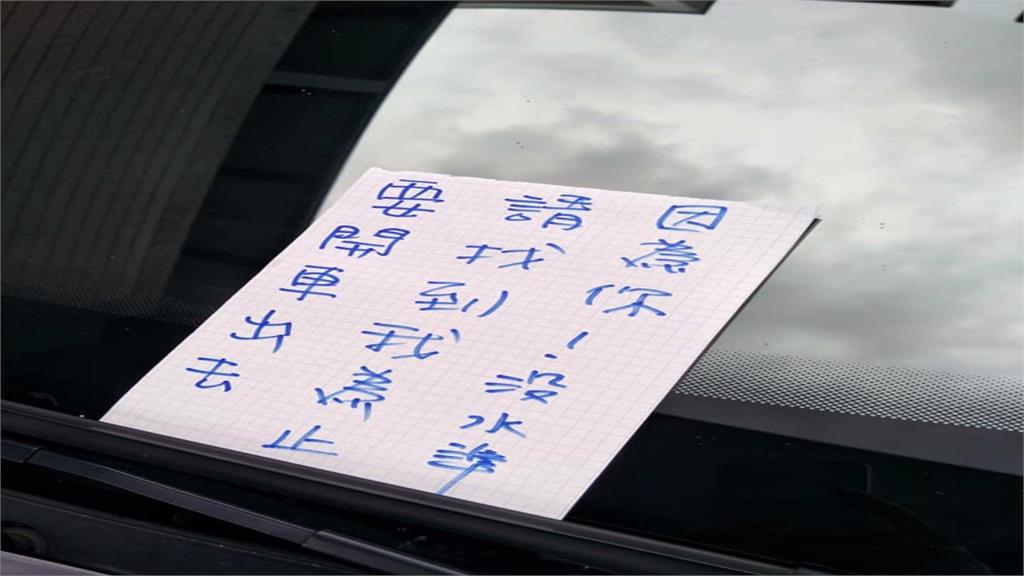 因為你！沒水準
請找到我為止
要開車出去